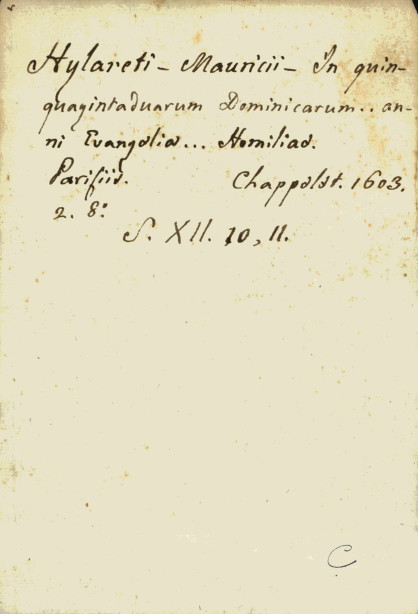 Hylareti - Mauricii - In quin-
quagintaduarum Dominicarum.. an-
ni Evangelia... Homiliae.
Parisiis. Chappelet. 1603.
2. 8º
S. XII. 10, 11.
C